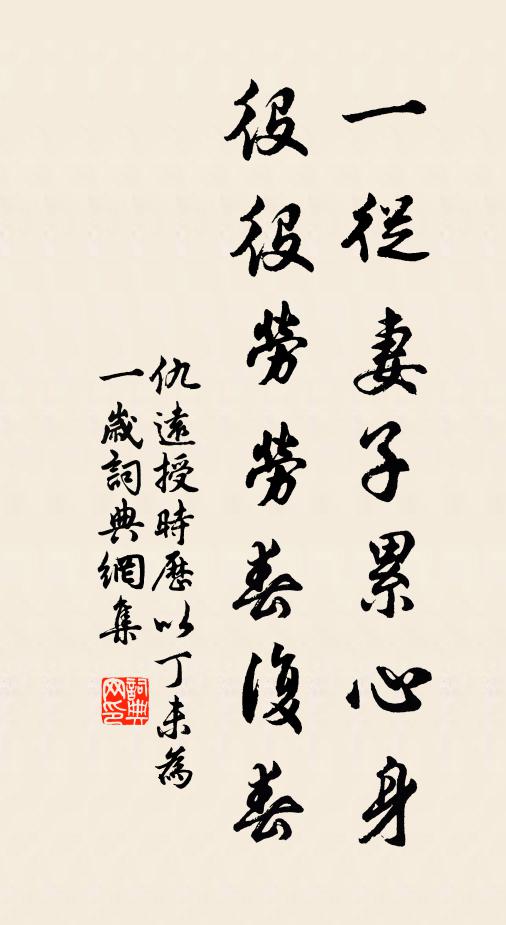 一從妻子累心身
役役勞勞春復春
仇遠授時歷以丁未為
一歲詞典網集
詞典网印